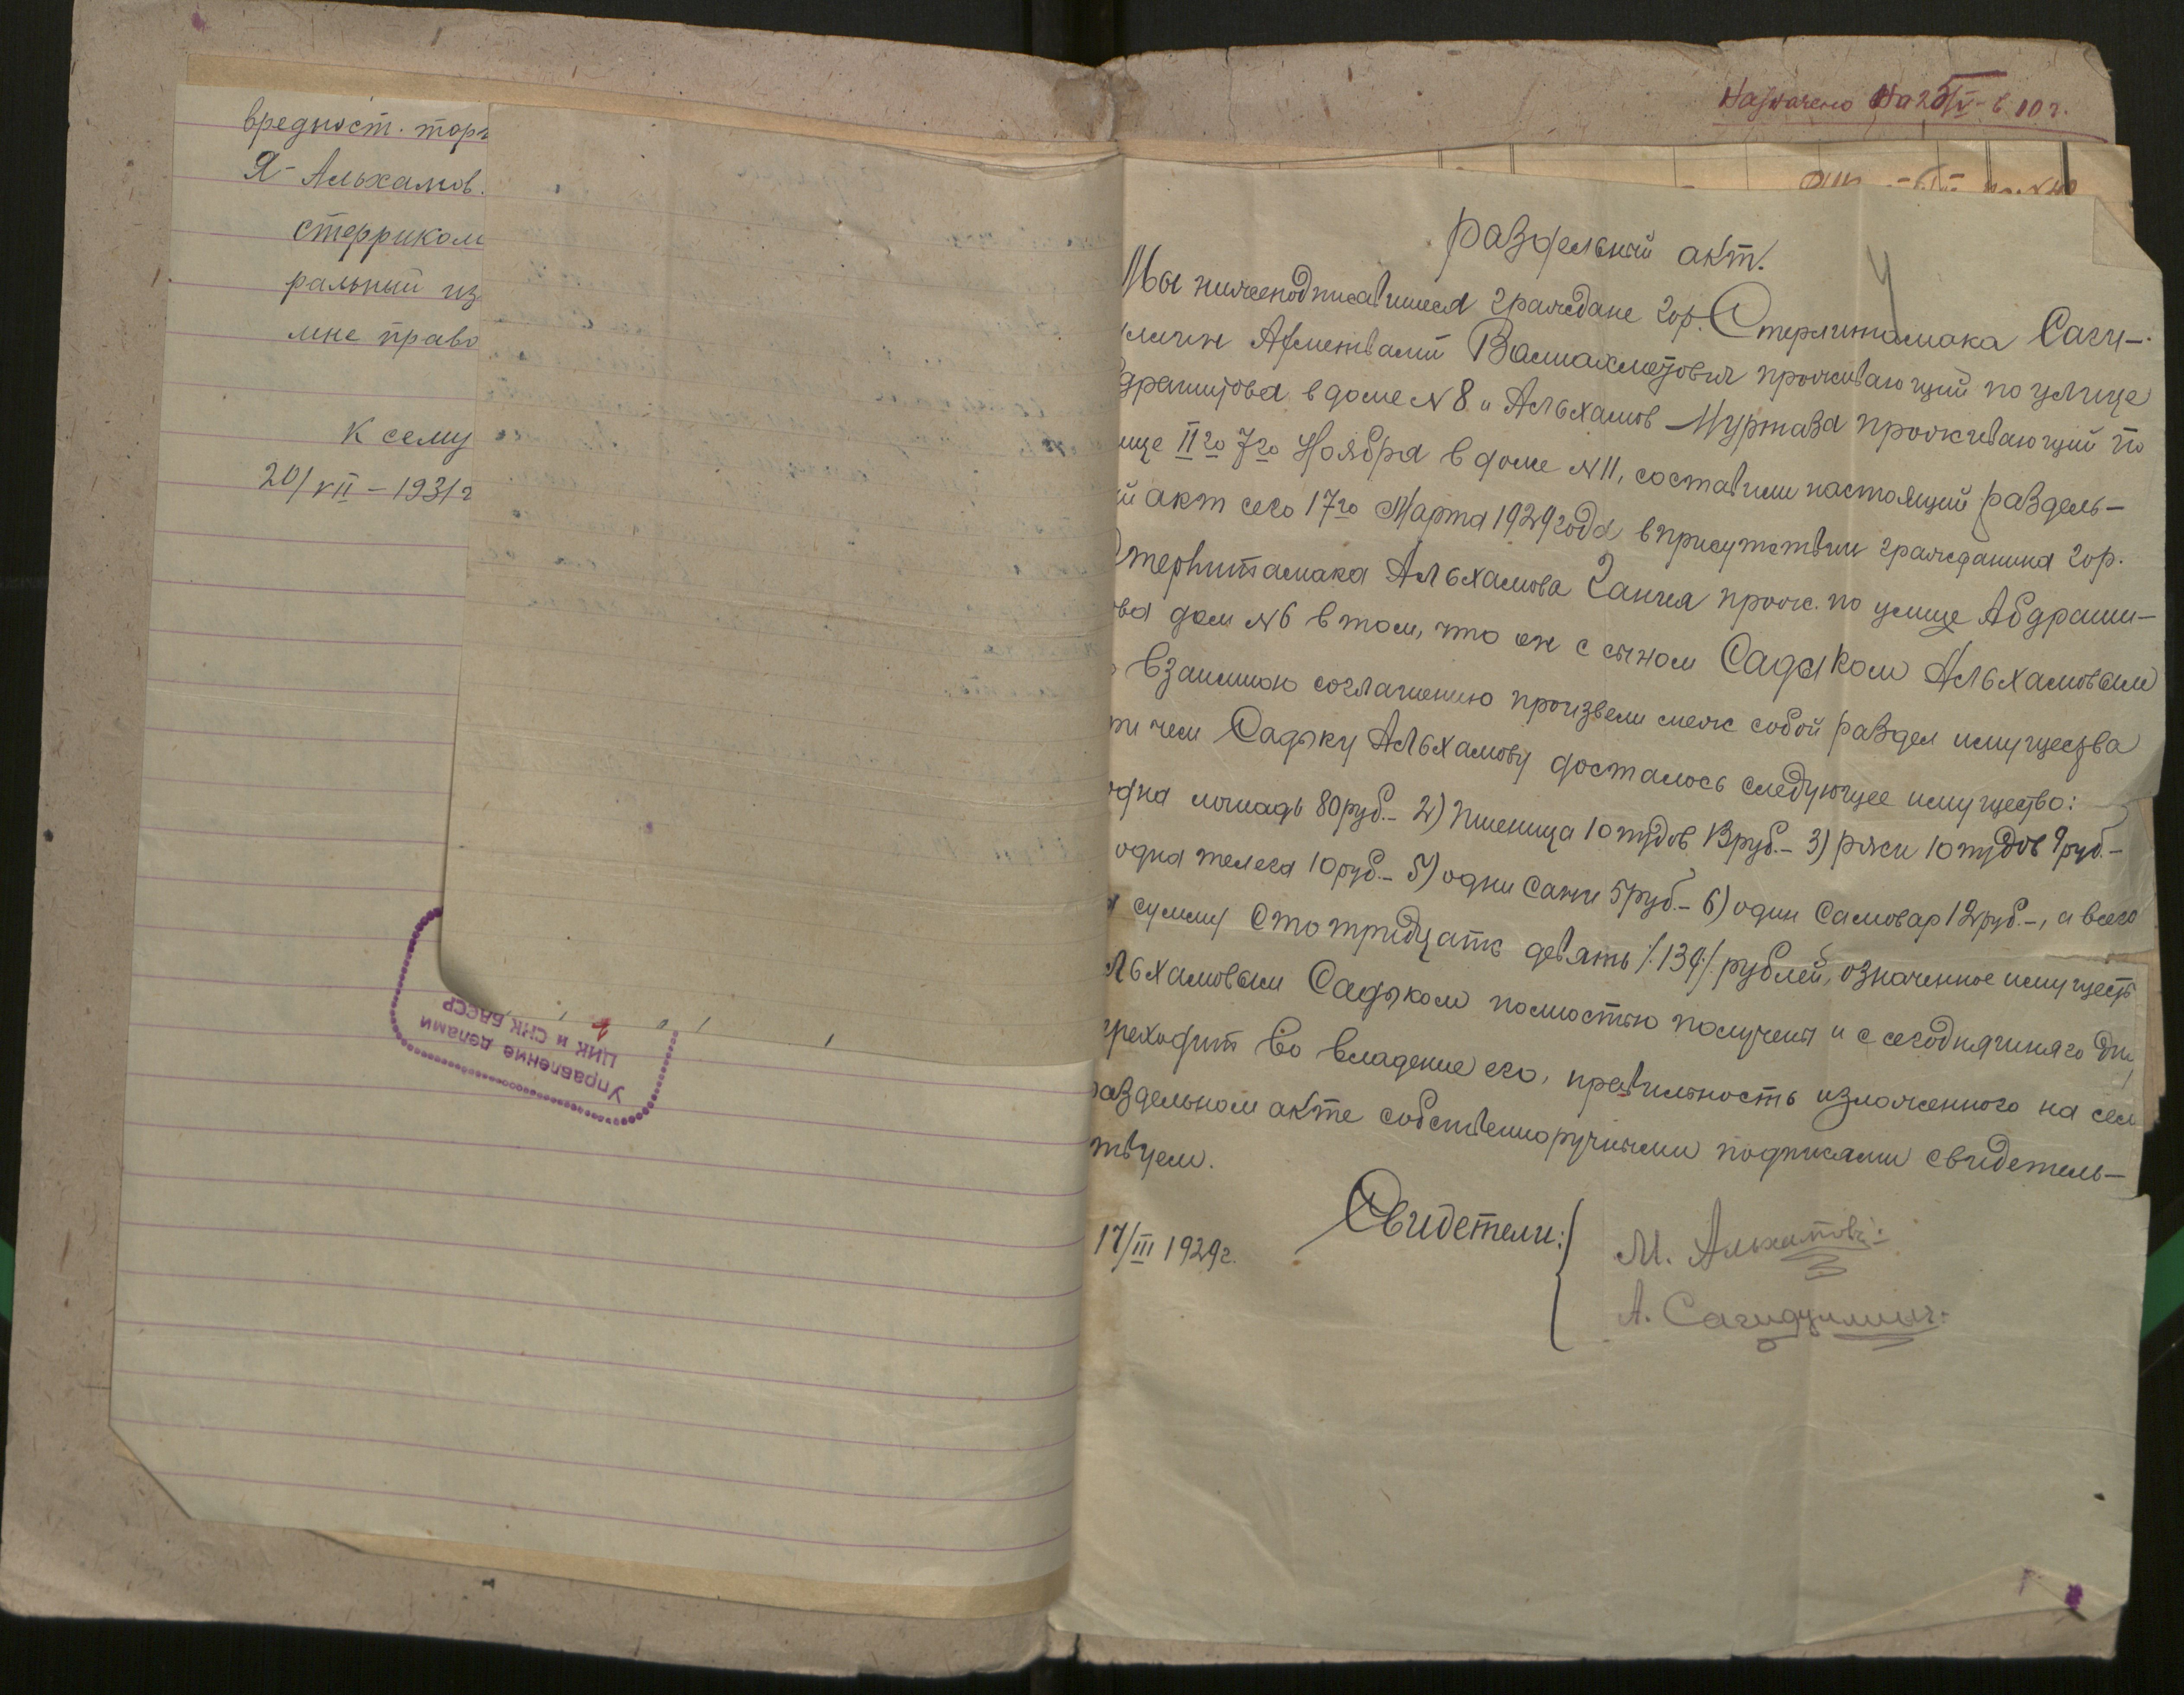 вредност. торг
Я - Альхамов.
стерриком
ральный из
мне право
К сему
20/VII - 1931 г
Управление делами
ЦИК и СНК БАССР
Назначено на 25/IV - в 10 ч.
раздельный акт.
Мы нижеподписавшиеся граждане гор. Стерлитамака Саги-
лин Ахметвалий Валиахметович проживающий по улице
драшитова в доме N 8 и Альхамов Муртаза проживающий по
ице II го 7 го Ноября в доме N 11, составили настоящий раздель-
й акт сего 17го Марта 1929 года в присутствии гражданина гор.
Стерлитамака Альхамова Гания прож. по улице Абдраши-
ова дом N 6 в том, что он с сыном Садыком Альхамовым
взаимною соглашению произвели меж собой раздел имущества
ри чем Садыку Альхамову досталось следующее имущество:
одна лошадь 80 руб.- 2) Пшеница 10 пудов 13 руб.- 3) ржи 10 пудов 9 руб.-
одна телега 10 руб.- 5) одни Сани 5 руб.- 6) один Самовар 12 руб.-, а всего
а сумму Сто тридцать девять /:139:/ рублей, означенное имуществ
льхамовым Садыком полностью получены и с сегодняшняго дня
ереходит во владение его, правильность изложенного на сем
раздельном акте собственноручными подписами свидетель-
твуем.
17/III 1929 г.
Свидетели:
М. Альхамов
А. Сагидуллин